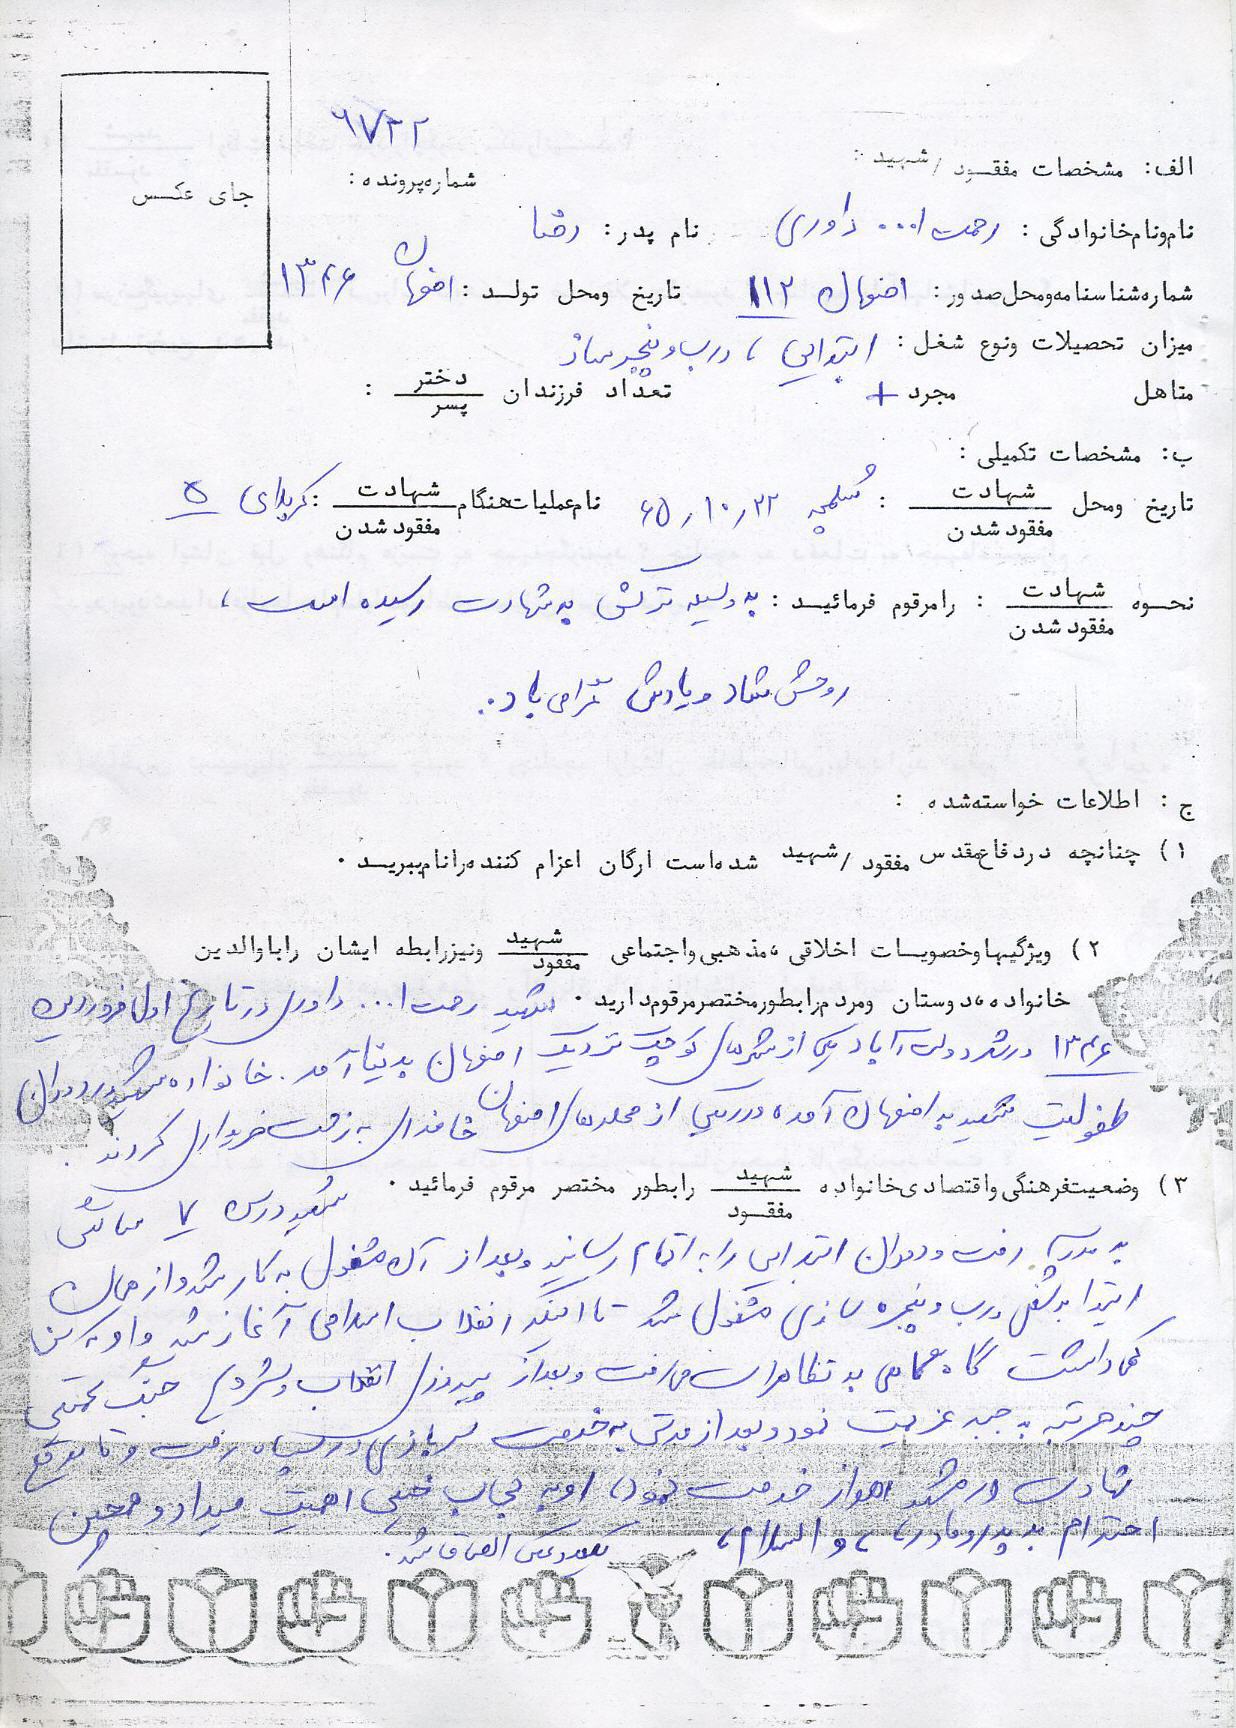 ۶۷۲۲
الف: مشخصات مفقود / شهید :
شماره پرونده :
جای عکس
نام ونام خانوادگی : رحمت ا... داوری نام پدر : رضا
شماره شناسنامه ومحل صدور : اصفهان ۱۱۲ تاریخ ومحل تولد : اصفهان ۱۳۴۶
میزان تحصیلات ونوع شغل : ابتدایی ، درب و پنجره ساز
متاهل مجرد + تعداد فرزندان دختر / پسر :
ب: مشخصات تکمیلی :
تاریخ ومحل شهادت / مفقود شدن : شلمچه ۶۵/۱۰/۲۲ نام عملیات هنگام شهادت / مفقود شدن : کربلای ۵
نحوه شهادت / مفقود شدن : را مرقوم فرمائید : به وسیله ترکش به شهادت رسیده است ،
روحش شاد و یادش گرامی باد .
ج : اطلاعات خواسته شده :
۱) چنانچه در دفاع مقدس مفقود / شهید شده است ارگان اعزام کننده را نام ببرید .
۲) ویژگیها وخصوصیات اخلاقی ، مذهبی واجتماعی شهید / مفقود ونیز رابطه ایشان را با والدین
خانواده ، دوستان ومردم را بطور مختصر مرقوم دارید . شهید رحمت ا... داوری در تاریخ اول فروردین
۱۳۴۶ در شهر دولت آباد یکی از شهرهای کوچک نزدیک اصفهان بدنیا آمد . خانواده شهید در دوران
طفولیت شهید به اصفهان آمده و در یکی از محله های اصفهان خانه ای به زحمت خریداری کردند .
۳) وضعیت فرهنگی واقتصادی خانواده شهید / مفقود را بطور مختصر مرقوم فرمائید . شهید در سن ۷ سالگی
به مدرسه رفت و دوران ابتدایی را به اتمام رسانید و بعد از آن مشغول به کار شد و از همان
ابتدا به شغل درب و پنجره سازی مشغول شد تا اینکه انقلاب اسلامی آغاز شد و او که سن
کمی داشت گاه گاهی به تظاهرات می رفت و بعد از پیروزی انقلاب و شروع جنگ تحمیلی
چند مرتبه به جبهه عزیمت نمود و بعد از مدتی به خدمت سربازی در سپاه رفت و تا موقع
شهادت در اهواز خدمت نمود ، او به حجاب خیلی اهمیت میداد و همچنین
احترام به پدر و مادر ، والسلام ،